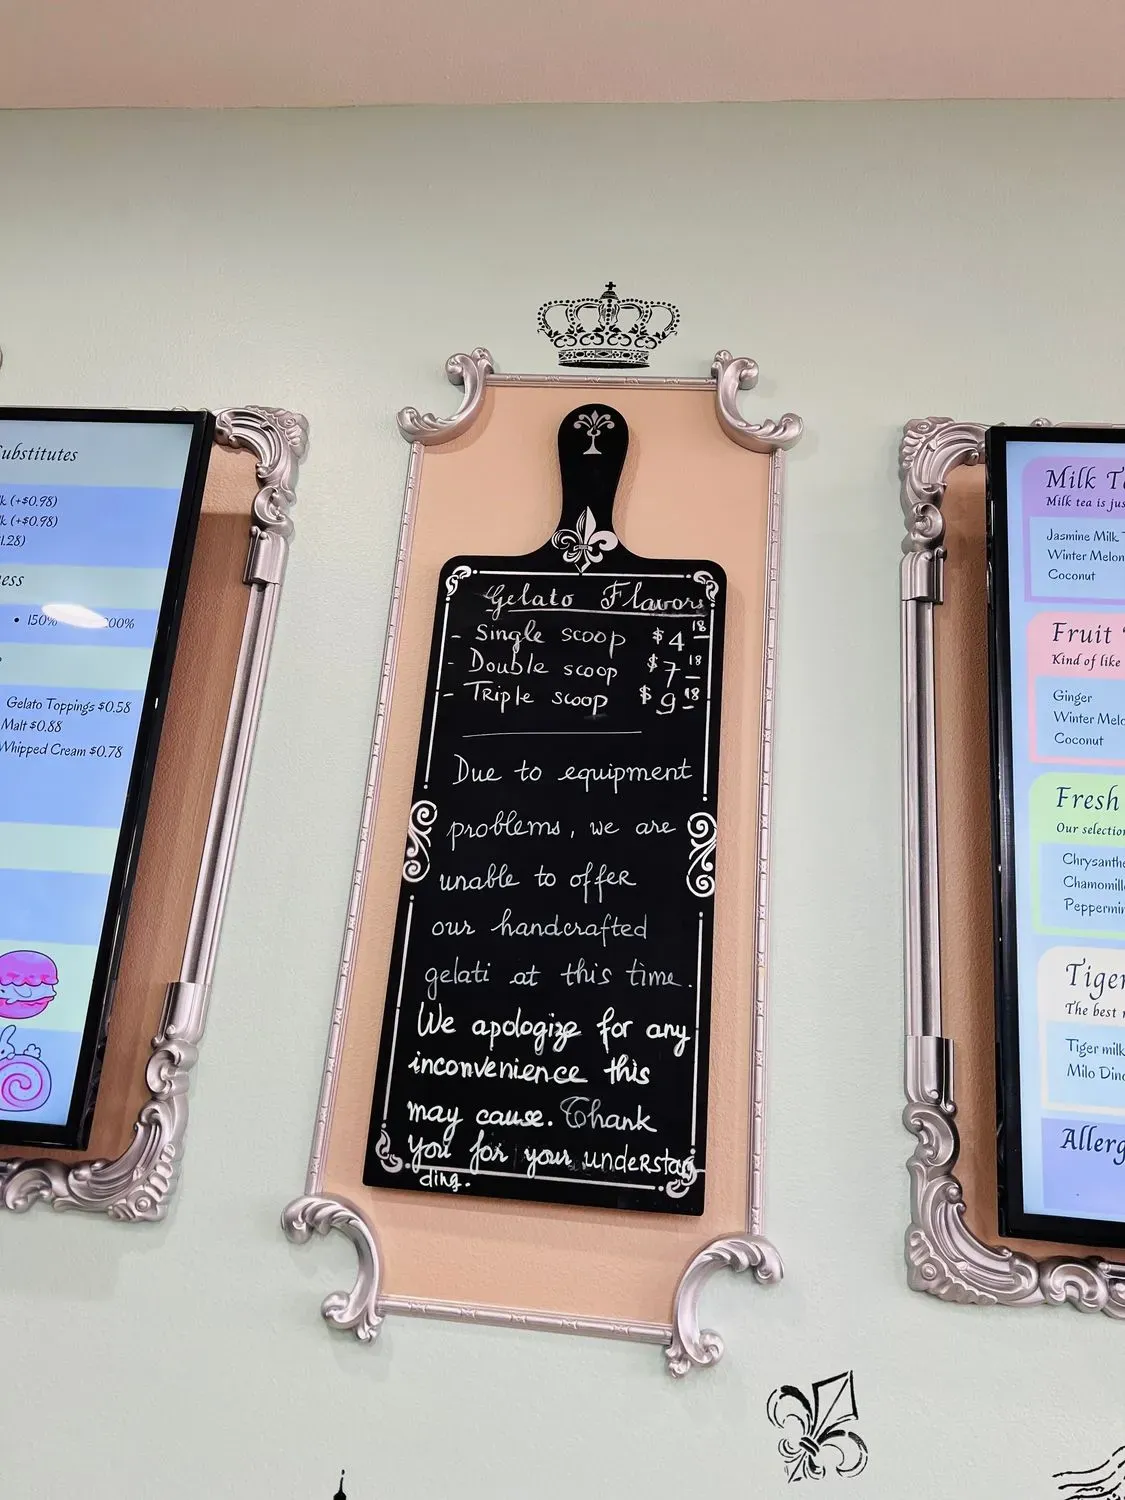 Substitutes
(+$0.98)
(+$0.98)
• 150%
Gelato Toppings $0.58
Malt $0.88
Whipped Cream $0.78
Gelato Flavors
- Single scoop $4 18
- Double scoop $7 18
- Triple scoop $9 18
Due to equipment
problems, we are
unable to offer
our handcrafted
gelati at this time.
We apologize for any
inconvenience this
may cause. Thank
you for your understan
ding.
Milk
Milk tea is
Jasmine Milk
Winter Melon
Coconut
Fruit
Kind of like
Ginger
Winter
Coconut
Fresh
Our
Tiger
The best
Tiger milk
Milo